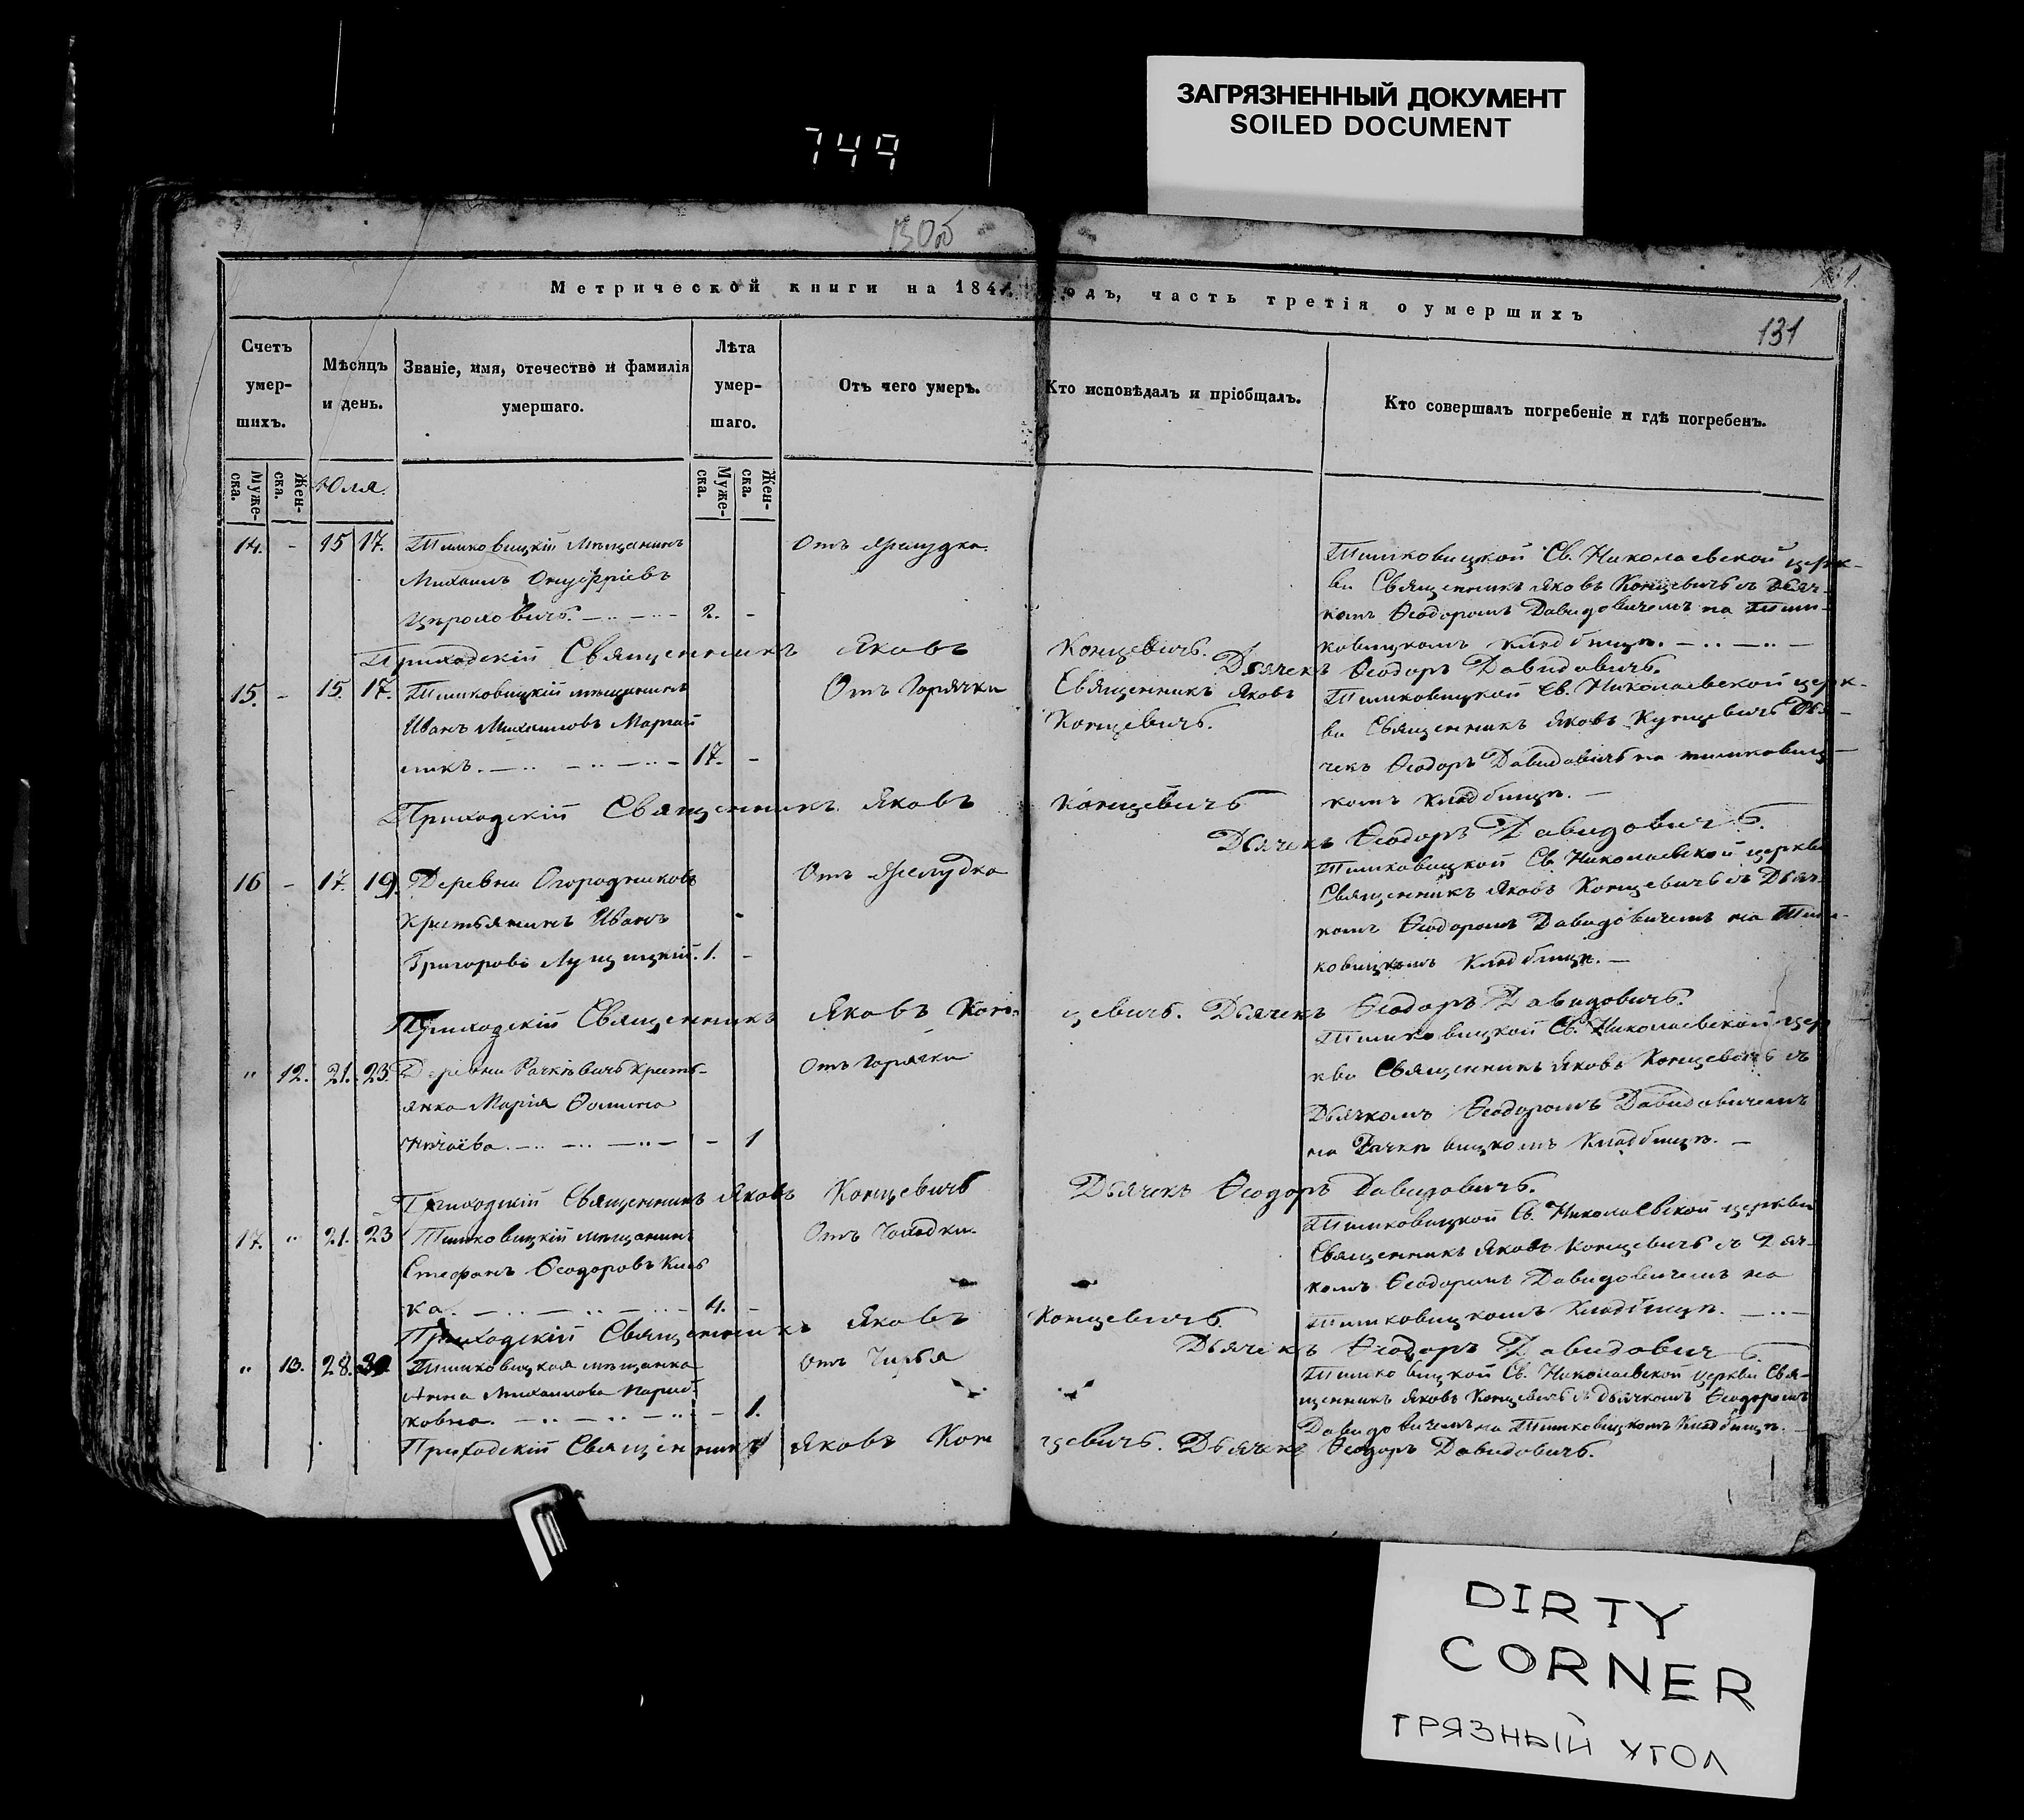 ЗАГРЯЗНЕННЫЙ ДОКУМЕНТ
SOILED DOCUMENT
749
130об
131
Метрической книги на 184 годъ, часть третія о умершихъ
Счетъ умер-шихъ.
Мѣсяцъ и день.
Званіе, имя, отечество и фамилія умершаго.
Лѣта умер-шаго.
Отъ чего умеръ.
Кто исповѣдалъ и пріобщалъ.
Кто совершалъ погребеніе и гдѣ погребенъ.
Муже-ска.
Жен-ска.
Юля.
Муже-ска.
Жен-ска.
14. - 15 17. Тимковицкій мѣщанинъ
Михаилъ Онуфріевъ
2. -
Отъ желудка.
Тимковицкой Св. Николаевской церк-
ви Священникъ Яковъ Концевичъ съ Дьяч-
комъ Ѳеодоромъ Давидовичемъ на Тим-
ковицкомъ кладбищѣ.
Приходскій Священникъ Яковъ Концевичъ.
Дьячекъ Ѳеодоръ Давидовичъ.
15. - 15. 17. Тимковицкій мѣщанинъ
Иванъ Михаиловъ
17. -
Отъ Горячки
Священникъ Яковъ
Концевичъ.
Тимковицкой Св. Николаевской церк-
ви Священникъ Яковъ Кунцевичъ Дья-
чекъ Ѳеодоръ Давидовичъ на тимковиц-
комъ кладбищѣ.
Приходскій Священникъ Яковъ Концевичъ
Дьячекъ Ѳеодоръ Давидовичъ.
16 - 17. 19. Деревни Огородниковъ
Крестьянинъ Иванъ
Григоровъ 1. -
Отъ Желудка
Тимковицкой Св. Николаевской церкви
Священникъ Яковъ Концевичъ съ Дьяч-
комъ Ѳеодоромъ Давидовичемъ на Тим-
ковицкомъ кладбищѣ.
Приходскій Священникъ Яковъ Кон-цевичъ. Дьячекъ Ѳеодоръ Давидовичъ.
" 12. 21. 23. Деревни Рачкевичъ кресть-
янка Марія Ѳомина
- 1
Отъ Горячки
Тимковицкой Св. Николаевской цер
кви Священникъ Яковъ Концевичъ съ
Дьячкомъ Ѳеодоромъ Давидовичемъ
на Рачкевицкомъ кладбищѣ.
Приходскій Священникъ Яковъ Концевичъ Дьячекъ Ѳеодоръ Давидовичъ.
17. " 21. 23 Тимковицкій мѣщанинъ
Стефанъ Ѳеодоровъ
4. -
Отъ
Тимковицкой Св. Николаевской церкви
Священникъ Яковъ Концевичъ съ Дяч-
комъ Ѳеодоромъ Давидовичемъ на
Тимковицкомъ кладбищѣ.
Приходскій Священникъ Яковъ Концевичъ
Дьячекъ Ѳеодоръ Давидовичъ.
" 13. 28. Тимковицкая мѣщанка
Анна Михаилова
- 1.
Отъ Чирья
Тимковицкой Св. Николаевской церкви Свя-
щенникъ Яковъ Концевичъ съ дьячкомъ Ѳеодоромъ
Давидовичемъ на Тимковицкомъ кладбищѣ.
Приходскій Священникъ Яковъ Концевичъ. Дьячекъ Ѳеодоръ Давидовичъ.
DIRTY
CORNER
ГРЯЗНЫЙ УГОЛ